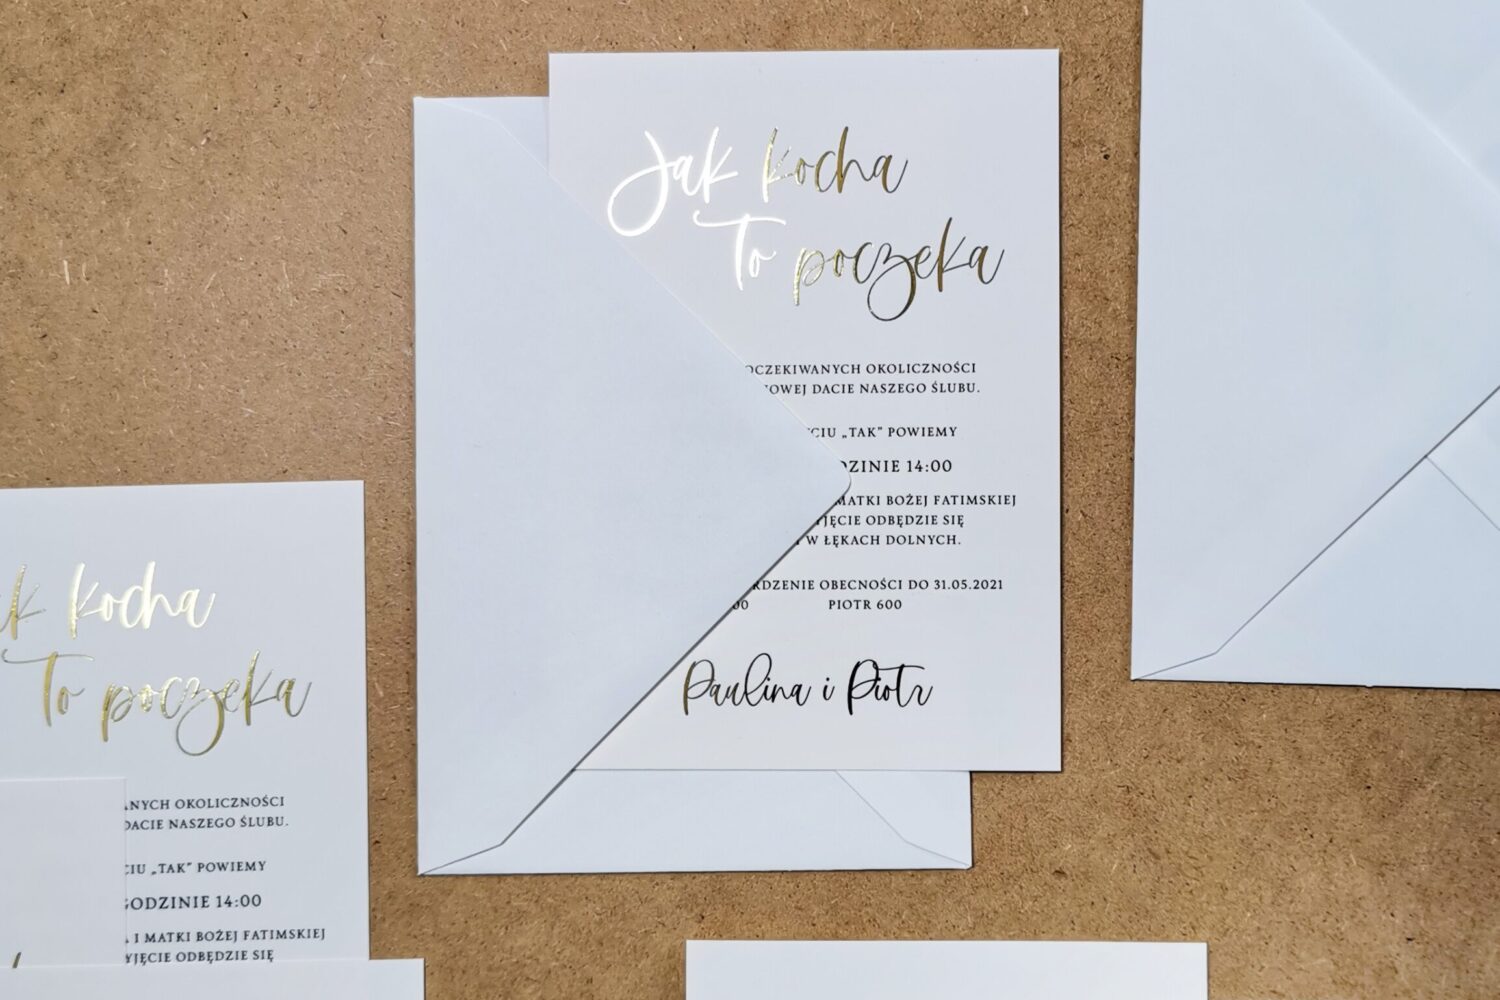 Jak kocha
To poczeka
OCZEKIWANYCH OKOLICZNOŚCI
OWEJ DACIE NASZEGO ŚLUBU.
CIU „TAK” POWIEMY
DZINIE 14:00
MATKI BOŻEJ FATIMSKIEJ
JĘCIE ODBĘDZIE SIĘ
W ŁĘKACH DOLNYCH.
RDZENIE OBECNOŚCI DO 31.05.2021
00 PIOTR 600
Paulina i Piotr
k kocha
To poczeka
ANYCH OKOLICZNOŚCI
DACIE NASZEGO ŚLUBU.
CIU „TAK” POWIEMY
GODZINIE 14:00
I MATKI BOŻEJ FATIMSKIEJ
YJĘCIE ODBĘDZIE SIĘ